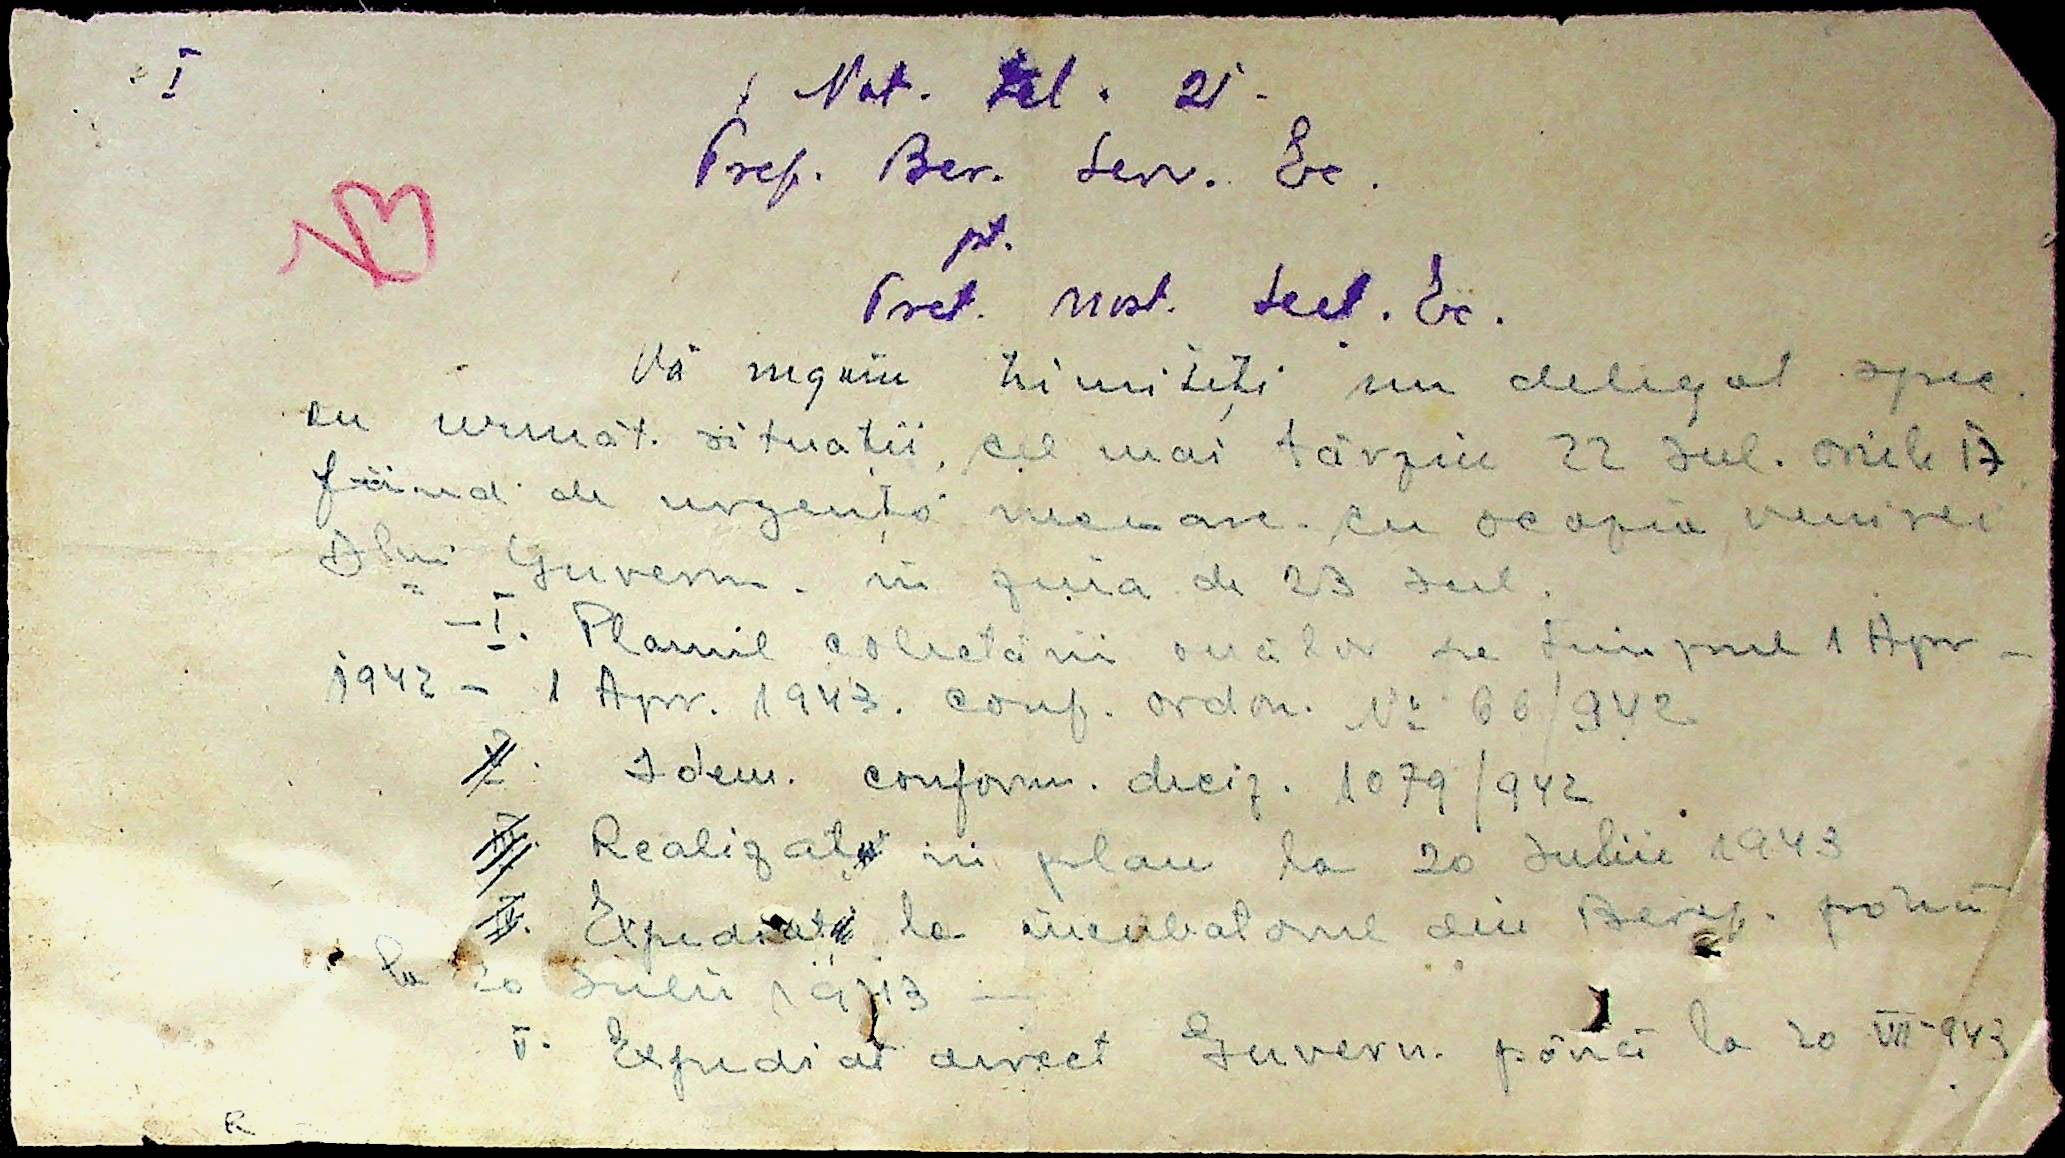 I
Not. tel. 21.
Pref. Ber. Serv. Ec.
pt.
Pret. Most. Sect. Ec.
Vă rugăm trimiteți un delegat spec.
cu următ. situații, cel mai târziu 22 Iul. orile 17
fiind de urgență mare cu ocazia venirei
Dlui Guvern. în ziua de 23 Iul.
– I. Planul colectării ouălor pe timpul 1 Apr –
1942 – 1 Apr. 1943. conf. ordon. No 66/942
2. Idem. conform. deciz. 1079/942
III. Realizat în plan la 20 Iulie 1943
IV. Expediat la incubatorul din Berez. până
la 20 Iulie 1943 —
V. Expediat direct Guvern. până la 20 VII-943
R